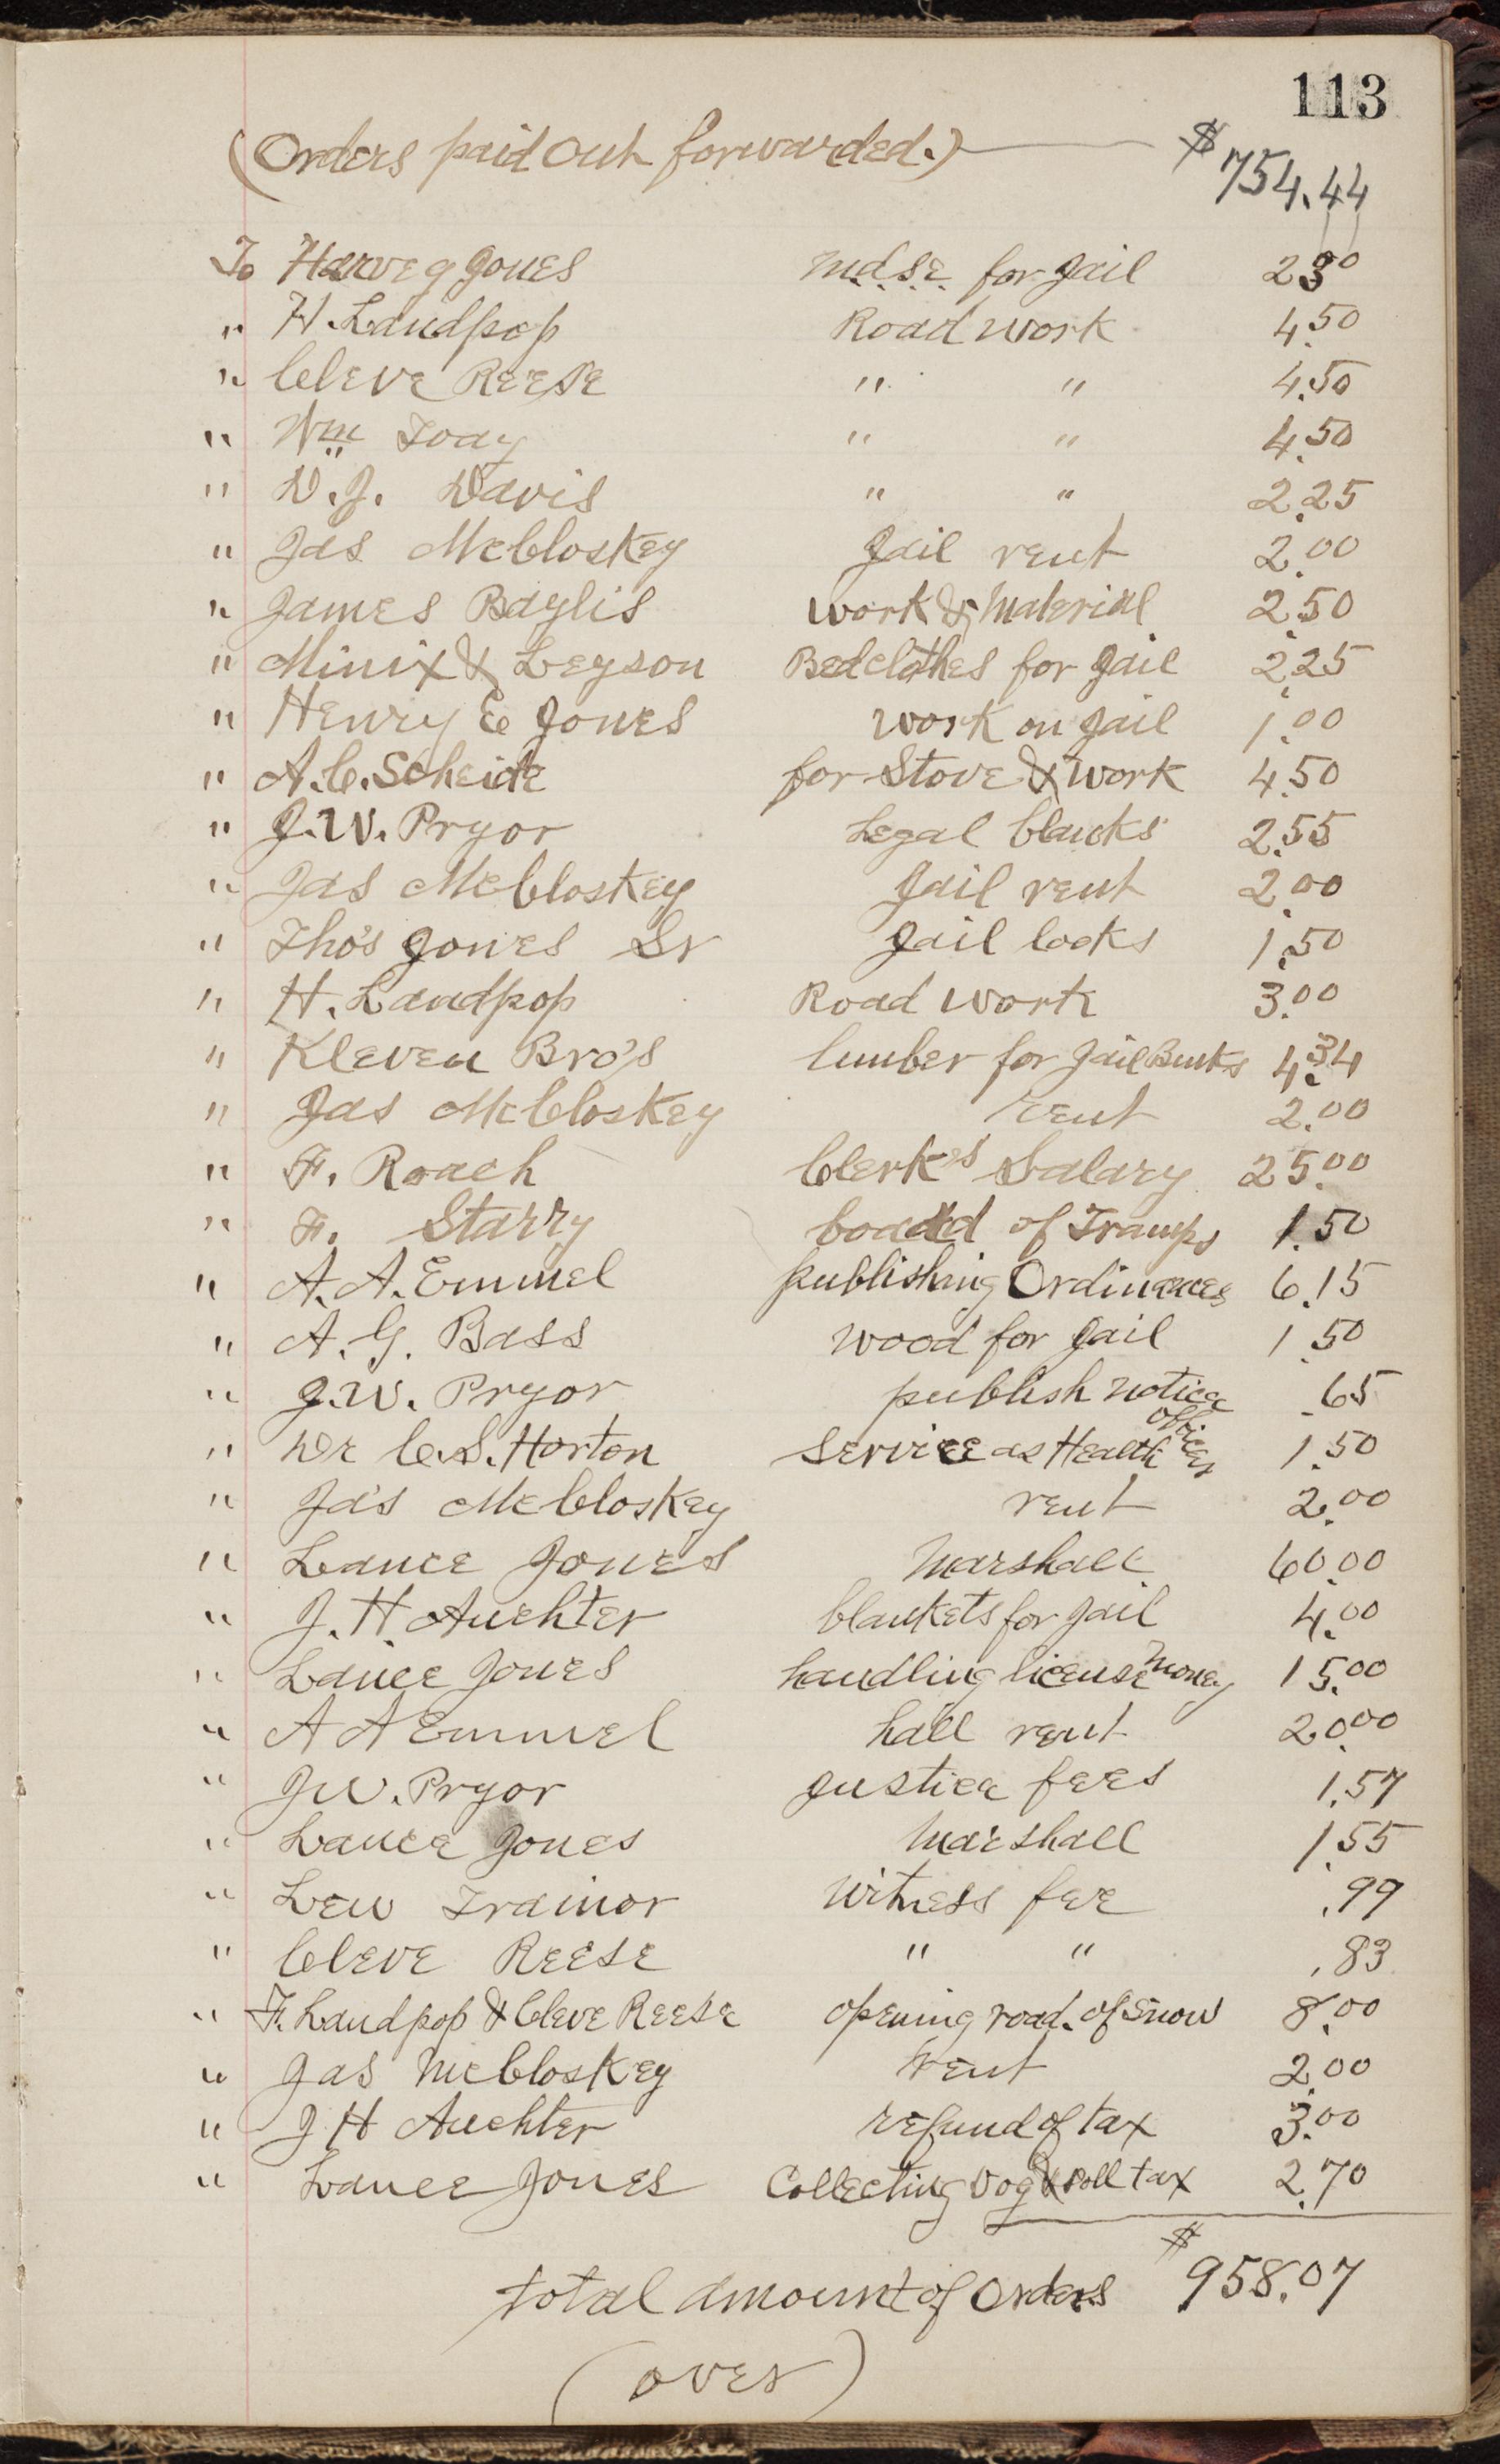 113
(Orders paid out forwarded.) $754.44
To Harvey Jones m.d.s.e. for Jail 2.30
" H. Landpop Road work 4.50
" Cleve Reese " " 4.50
" Wm Tody " " 4.50
" D. J. Davis " " 2.25
" Jas McCloskey Jail rent 2.00
" James Baylis work & Material 2.50
" Minix & Leyson Bedclothes for Jail 2.25
" Henry E Jones work on Jail 1.00
" A. C. Scheide for Stove & work 4.50
" J. W. Pryor Legal blanks 2.55
" Jas McCloskey Jail rent 2.00
" Tho's Jones Sr Jail locks 1.50
" H. Landpop Road work 3.00
" Kleven Bro's lumber for Jail Bunks 4.34
" Jas McCloskey rent 2.00
" F. Roach Clerk's Salary 25.00
" F. Starry board of Tramps 1.50
" A. A. Emmel publishing Ordinances 6.15
" A. G. Bass wood for Jail 1.50
" J. W. Pryor publish notice .65
" Dr C. S. Horton Service as Health officer 1.50
" Jas McCloskey rent 2.00
" Lance Jones Marshall 60.00
" J. H. Auchter blankets for Jail 4.00
" Lance Jones handling license money 15.00
" A A Emmel hall rent 20.00
" J W. Pryor Justice fees 1.57
" Lance Jones Marshall 1.55
" Lew Trainor Witness fee .99
" Cleve Reese " " .83
" F. Landpop & Cleve Reese opening road of Snow 8.00
" Jas McCloskey rent 2.00
" J H Auchter refund of tax 3.00
" Lance Jones Collecting Dog & Poll tax 2.70
total amount of Orders $958.07
(over)